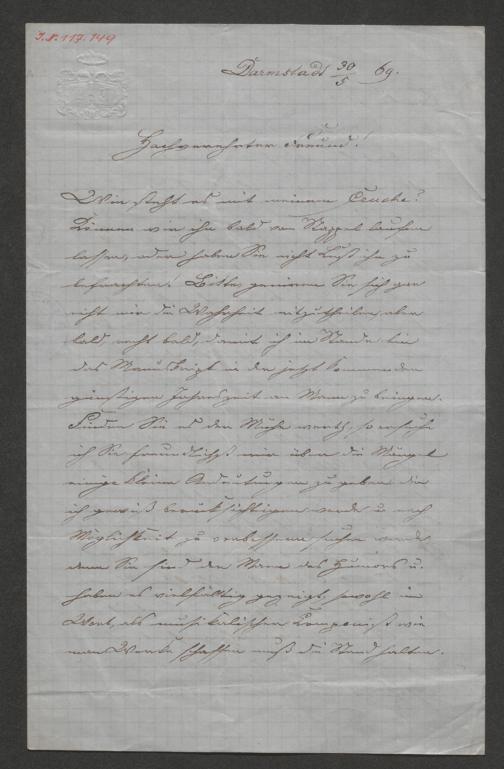 I.N. 117.149
Darmstadt 30/5 69.
Hochverehrter Freund!
Wie steht es mit meinem
Können wir ihn bald vom Stappel laufen
lassen, oder haben Sie nicht Lust ihn zu
befrachten. Bitte geniren Sie sich gar
nicht mir die Wahrheit mitzutheilen, aber
bald, recht bald, damit ich im Stande bin
das Manuskript in der jetzt kommenden
günstigen Jahreszeit an Mann zu bringen.
Finden Sie es der Mühe werth, so ersuche
ich Sie freundlichst mir über die Mängel
einige kleine Andeutungen zu geben die
ich gewiß berücksichtigen werde u. nach
Möglichkeit zu verbessern suchen werde
denn Sie sind der Mann des Humors u.
haben es vielfältig gezeigt, sowohl im
Wort, als musikalischer Komponist wie
man Werke schaffen muß die Stand halten.